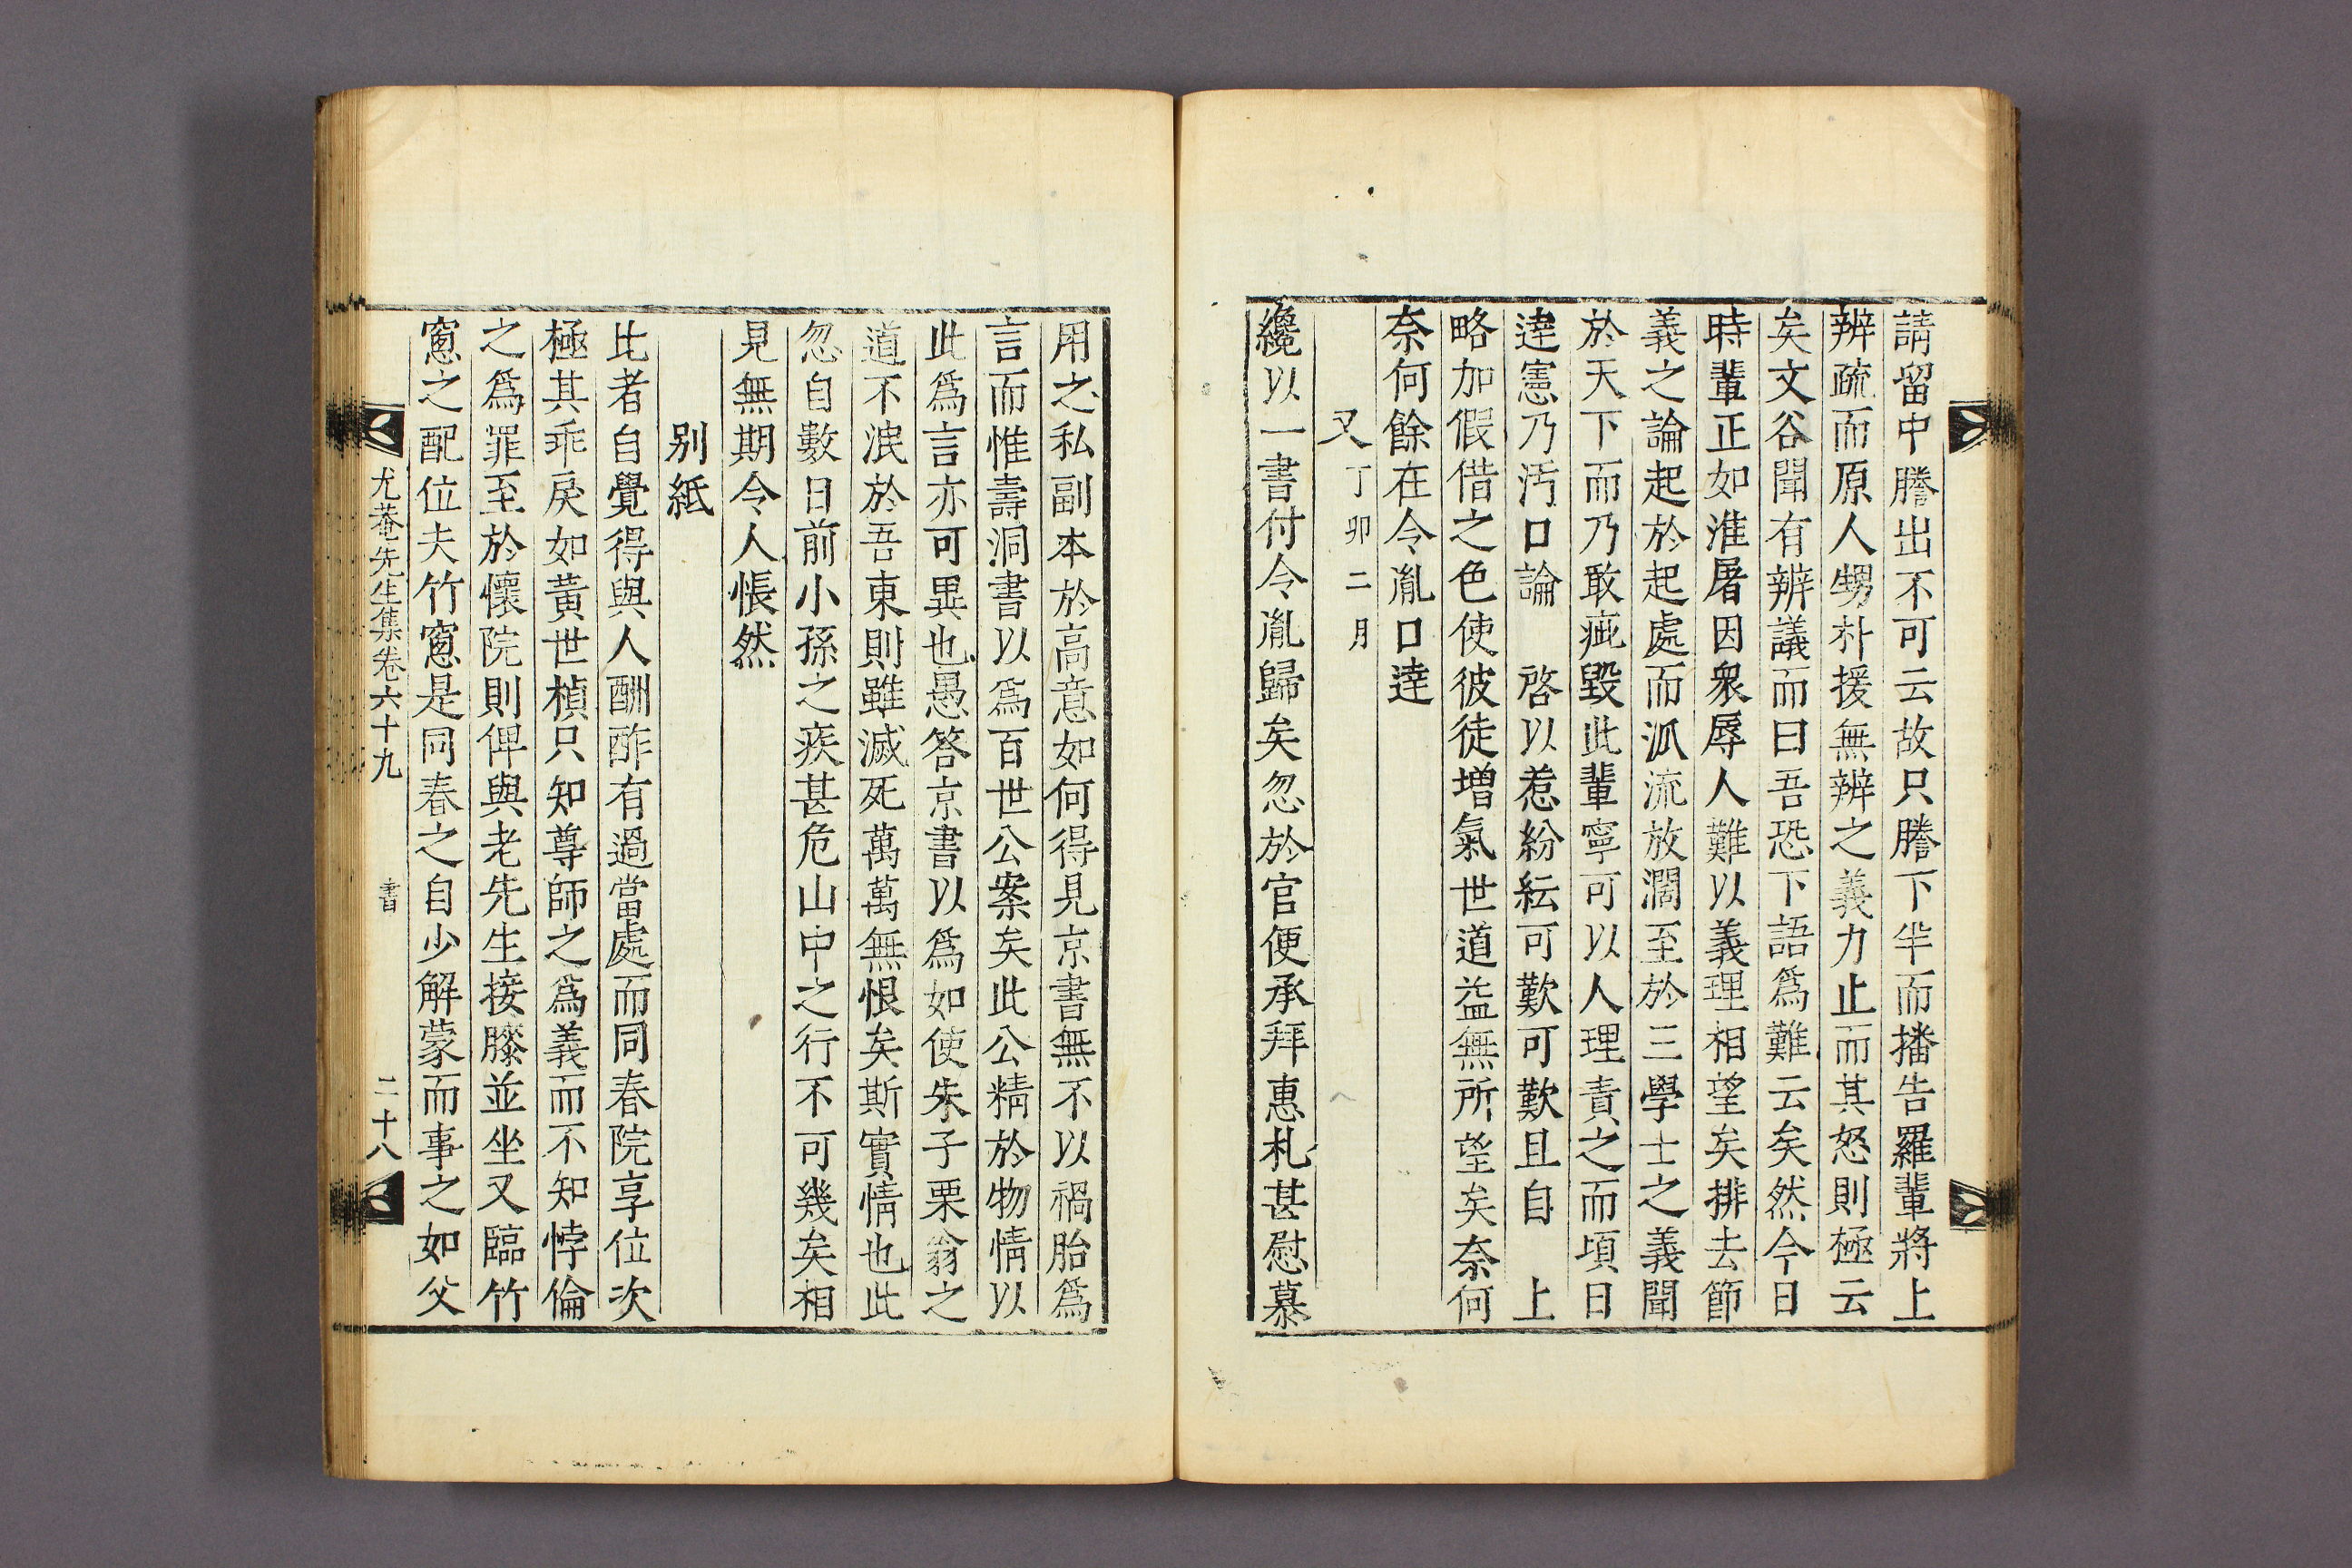 請留中謄出不可云故只謄下半而播告羅輩將上
辨疏而原人甥朴援無辨辨之義力止而其怒則極云
矣文谷聞有辨議而曰吾恐下語爲難云矣然今日
時輩正如淮屠因衆辱人難以義理相望矣排去節
義之論起於起處而派流放濶至於三學士之義聞
於天下而乃敢疵毀此輩寧可以人理責之而頃日
違憲乃汚口論 啓以惹紛紜可歎可歎且自 上
略加假借之色使彼徒增氣世道益無所望矣奈何
奈何餘在令胤口達
又丁卯二月
纔以一書付令胤歸矣忽於官便承拜惠札甚慰慕
用之私副本於高意如何得見京書無不以禍胎爲
言而惟壽洞書以爲百世公案矣此公精於物情以
此爲言亦可異也愚答京書以爲如使朱子栗翁之
道不泯於吾東則雖滅死萬萬無恨矣斯實情也此
忽自數日前小孫之疾甚危山中之行不可幾矣相
見無期令人悵然
別紙
比者自覺得與人酬酢有過當處而同春院享位次
極其乖戾如黃世楨只知尊師之爲義而不知悖倫
之爲罪至於懷院則俾與老先生接膝並坐又臨竹
窻之配位夫竹窻是同春之自少解蒙而事之如父
尤菴先生集卷六十九 書 二十八